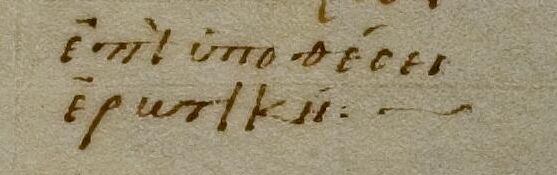 ἐπὶ ὑποθέσει
ἐρωτικῆ: